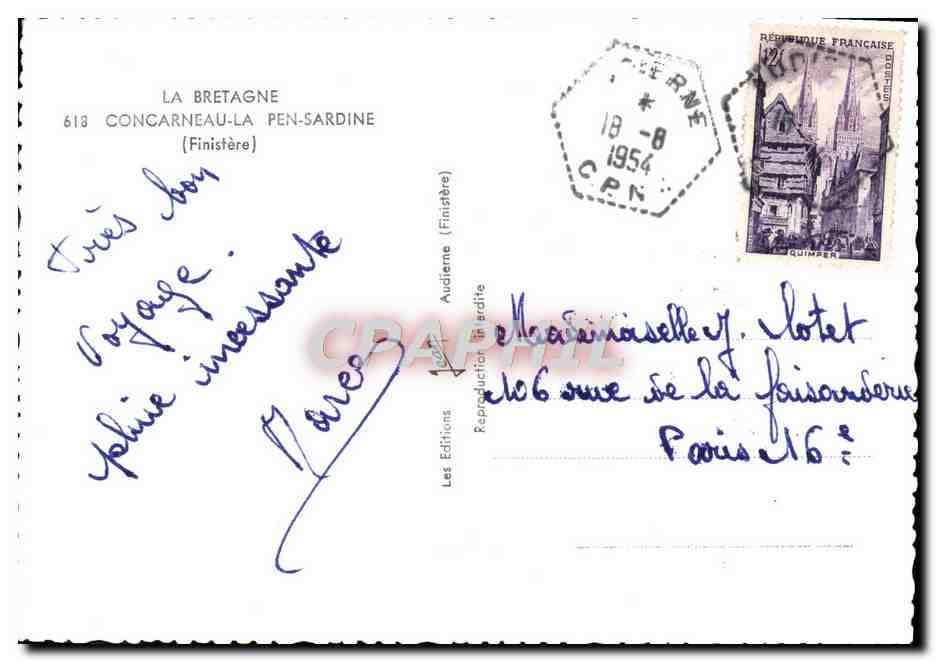 LA BRETAGNE
618 CONCARNEAU-LA PEN-SARDINE
(Finistère)
Très bon
voyage.
pluie incessante
Marco
Les Editions Jean Audierne (Finistère)
Reproduction interdite
IERNE
*
18 -8
1954
C.P.N
RÉPUBLIQUE FRANÇAISE
12f
POSTES
QUIMPER
Mademoiselle J. Lotet
106 rue de la faisanderie
Paris 16e
CPAPHIL